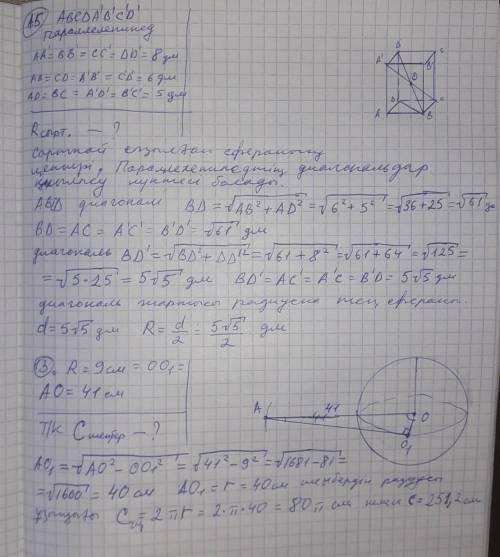 А5 ABCDA'B'C'D'
параллелепипед
AA' = BB' = CC' = DD' = 8 дм
AB = CD = A'B' = C'D' = 6 дм
AD = BC = A'D' = B'C' = 5 дм
Rсырт. — ?
Сырттай сызылған сфераның
центрі, Параллелепипедтің диагональдар
қиылысу нүктесі болады.
ABD диагонали BD = √AB² + AD² = √6² + 5² = √36+25 = √61 дм
BD = AC = A'C' = B'D' = √61 дм
диагональ BD' = √BD² + DD'² = √61 + 8² = √61 + 64 = √125 =
= √5·25 = 5√5 дм BD' = AC' = A'C = B'D = 5√5 дм
диагональ жартысы радиусна тең сфераны.
d = 5√5 дм R = d/2 = 5√5/2 дм
A' D' C' B'
O
D C
A B
3. R = 9 см = OO₁ =
AO = 41 см
Т/К C шеңбер — ?
A 41 O
O₁
AO₁ = √AO² - OO₁² = √41² - 9² = √1681 - 81 =
= √1600 = 40 см AO₁ = r = 40 см шеңбердің радиусы
ұзындығы C = 2πr = 2·π·40 = 80π см C = 251,2 см